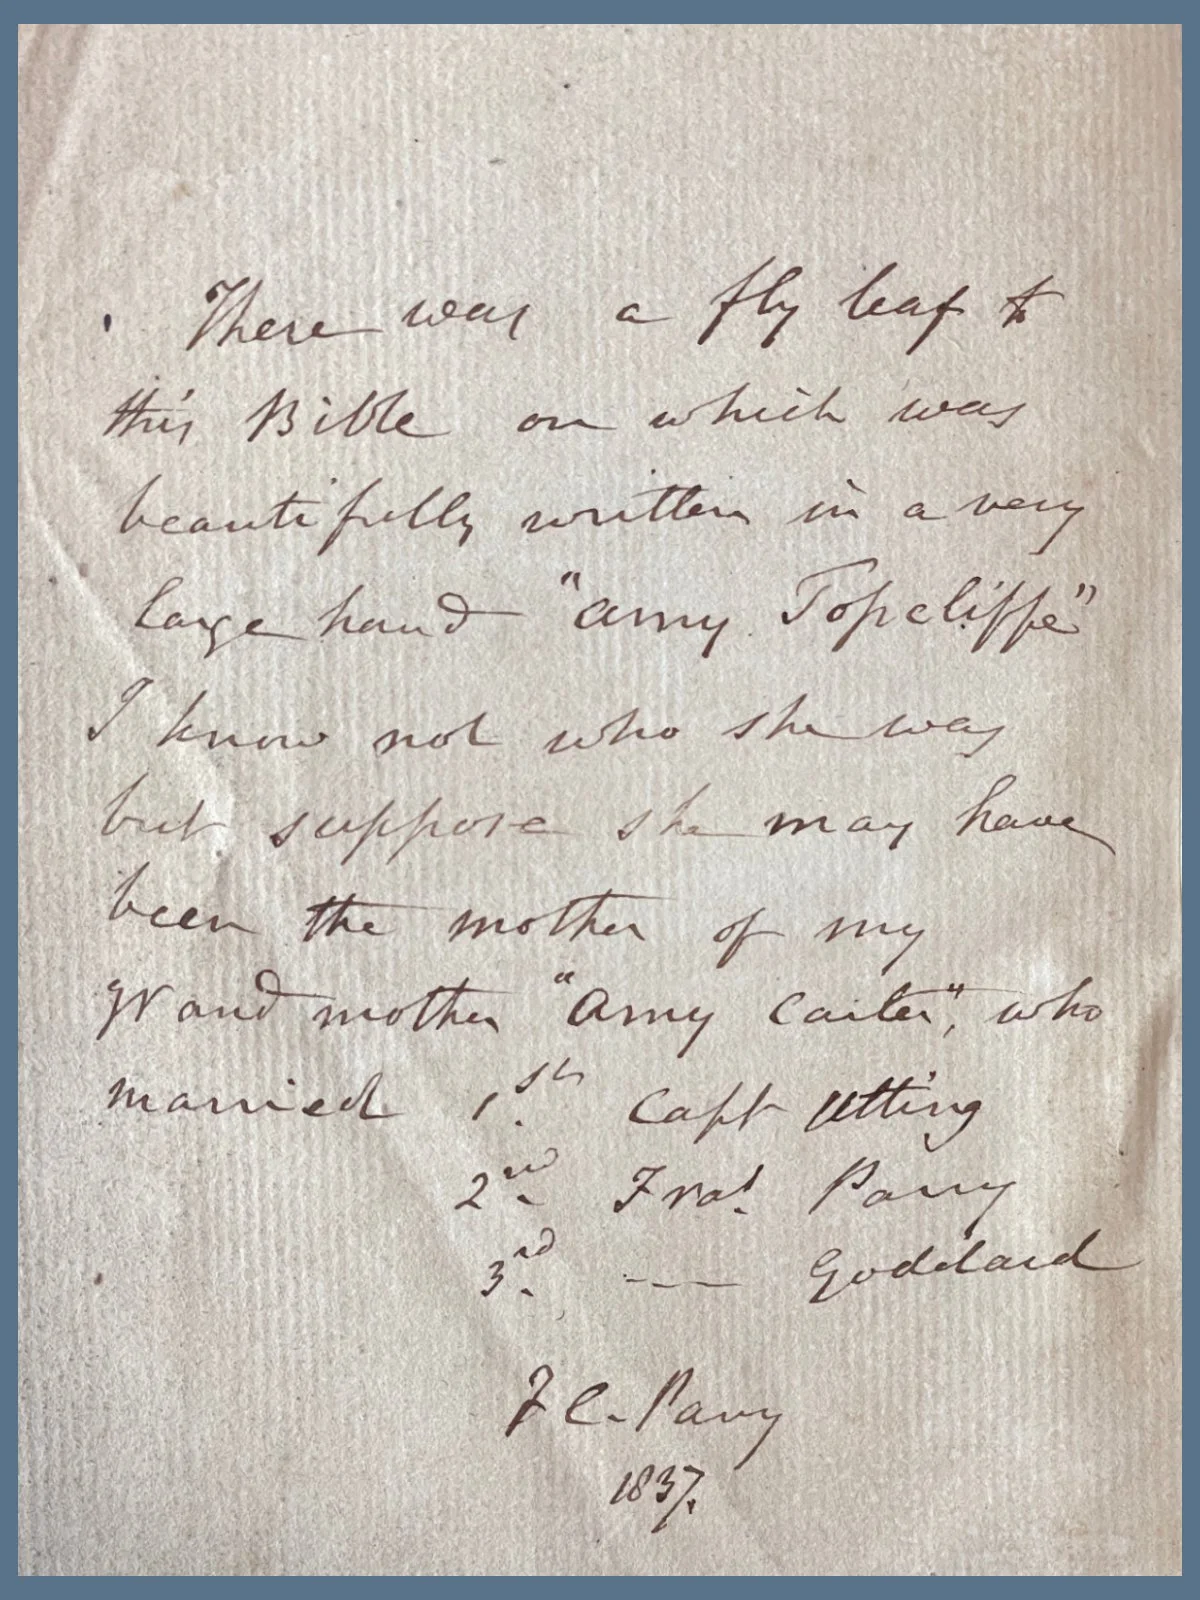 There was a fly leaf to
this Bible on which was
beautifully written in a very
large hand "Amy Topcliffe"
I know not who she was
but suppose she may have
been the mother of my
grand mother "Amy Carter", who
married 1st. Capt Utting
2nd. Fras. Parry
3rd. —— Goddard
F C. Parry
1837.